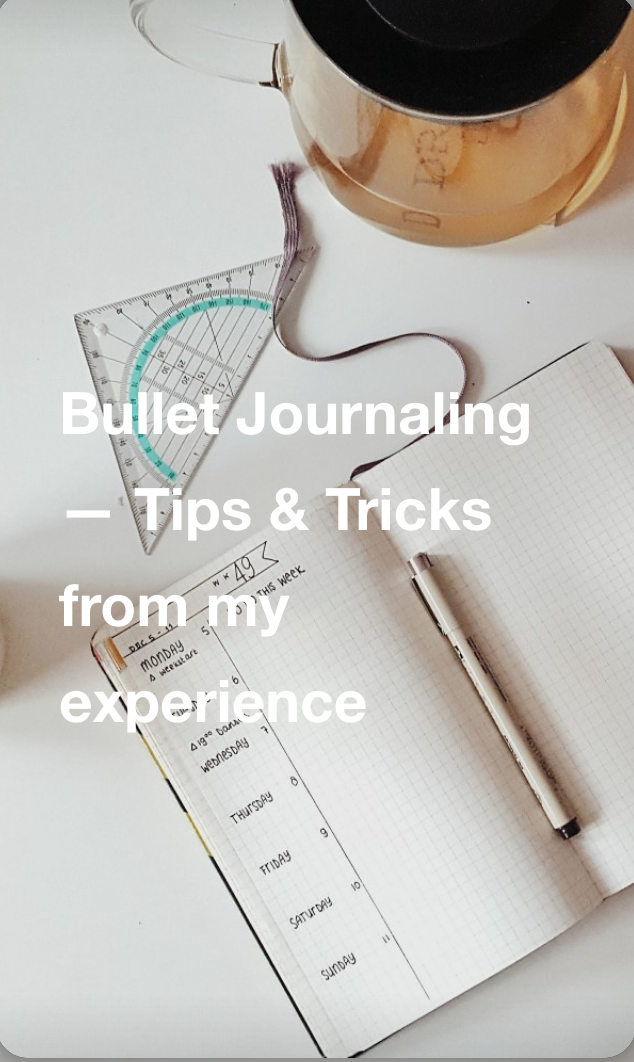 Bullet Journaling
— Tips & Tricks
from my
experience
WK 49
THIS WEEK
DEC 5 - 11
MONDAY 5
Δ weekstart
6
WEDNESDAY 7
THURSDAY 8
FRIDAY 9
SATURDAY 10
SUNDAY 11